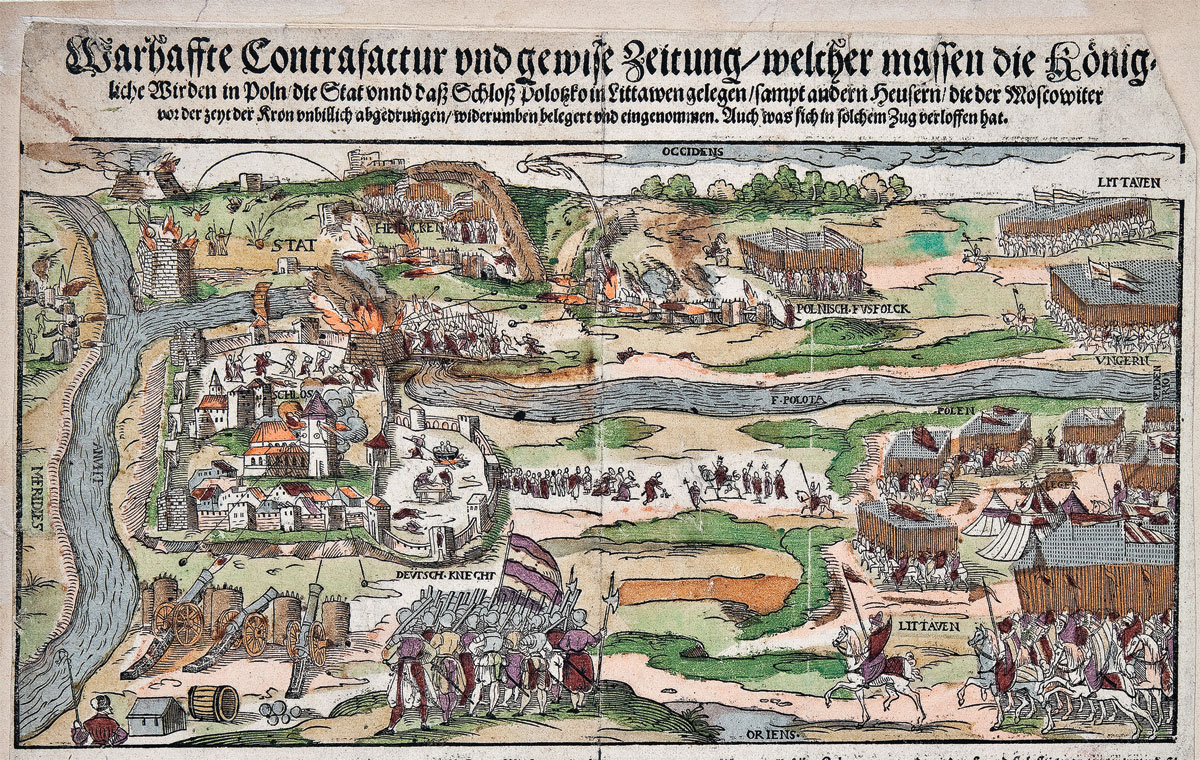 Warhaffte Contrafactur vnd gewise Zeitung/ welcher massen die König-
liche Wirden in Poln/ die Stat vnnd daß Schloß Polotzko in Littawen gelegen/ sampt andern Heusern/ die der Moscowiter
vor der zeyt der Kron vnbillich abgedrungen/ widerumben belegert vnd eingenommen. Auch was sich in solchem Zug verloffen hat.
OCCIDENS
LITTAVEN
STAT
POLNISCH·FVSFOLCK
VNGERN
SCHLOS
F·POLOTA
POLEN
MERIDIES
DEVTSCH·KNECHT
LITTAVEN
ORIENS·